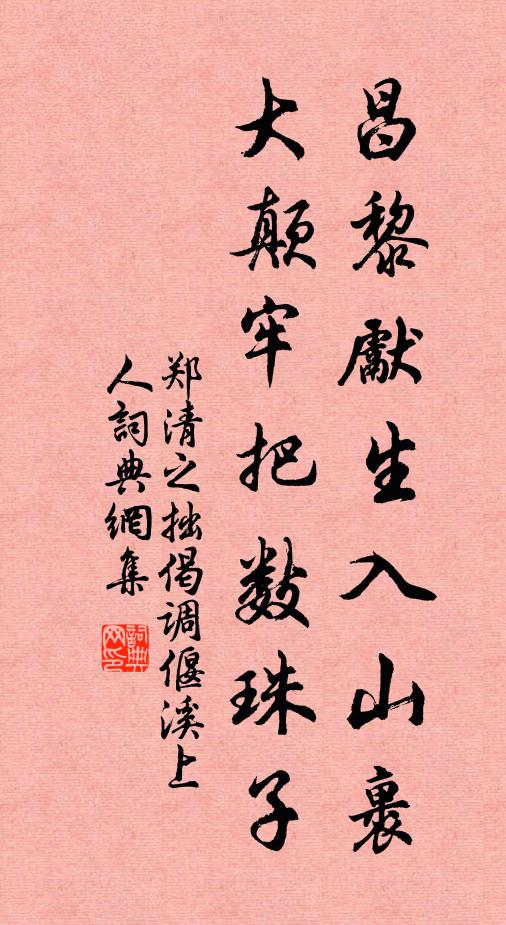 昌黎献生入山裏
大颠牢把数珠子
郑清之拙偈调偃溪上
人詞典網集
詞典
网印